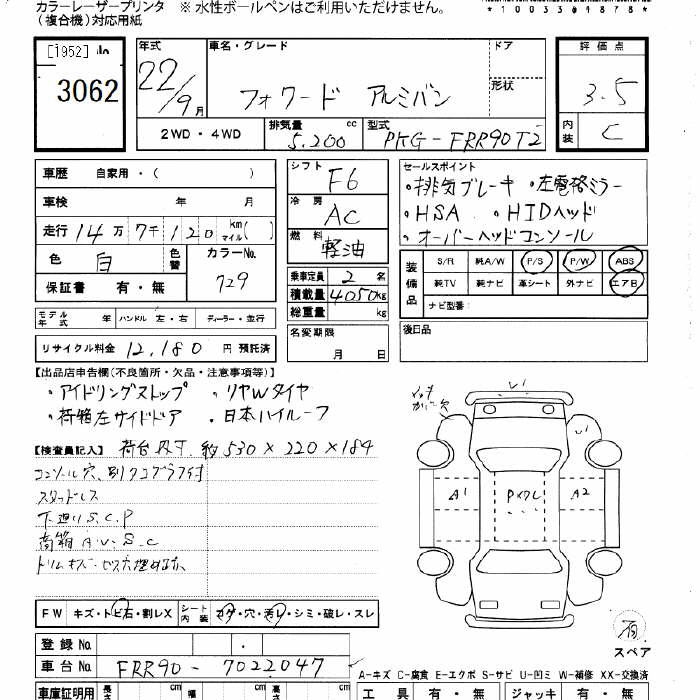 カラーレーザープリンタ ※ 水性ボールペンはご利用いただけません。
(複合機)対応用紙
*10033*9878*
[1952]
3062
年式 車名・グレード ドア 評価点
22/9月 フォワード アルミバン 形状 3.5
2WD・4WD 排気量 5,200 cc 型式 PKG-FRR90T2 内装 C
車歴 自家用・( )
車検 年 月
走行 14万7千120 km マイル( )
色 白 色替 カラーNo. 729
保証書 有・無
シフト F6
冷房 AC
燃料 軽油
乗車定員 2 名
積載量 4050kg
総重量 kg
セールスポイント
・排気ブレーキ ・左電格ミラー
・HSA ・HIDヘッド
・オーバーヘッドコンソール
装備品 S/R 純A/W P/S P/W ABS
純TV 純ナビ 革シート 外ナビ エアB
ナビ型番:
モデル年式 年 ハンドル 左・右 ディーラー・並行
リサイクル料金 12,180 円 預託済
名変期限 月 日
後日品
【出品店申告欄(不良箇所・欠品・注意事項等)】
・アイドリングストップ ・リヤWタイヤ
・荷箱左サイドドア ・日本ハイルーフ
【検査員記入】 荷台内寸 約530×220×184
コンソール穴、別タコグラフ付
スタッドレス
下廻りS.C.P
荷箱A.U.S.C
トリムキズ・ビス穴埋め跡
A1 Pメクレ A2
FW キズ・トビ石・割レX シート内装 コゲ・穴・汚レ・シミ・破レ・スレ
有
スペア
登録No.
車台No. FRR90-7022047
A-キズ C-腐食 E-エクボ S-サビ U-凹ミ W-補修 XX-交換済
車庫証明用 長さ cm 幅 cm cm 工具 有・無 ジャッキ 有・無